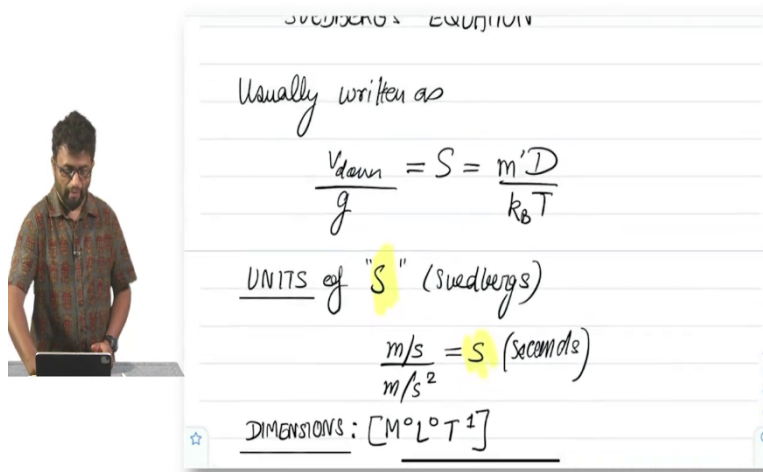 SVEDBERG'S EQUATION
Usually written as
v_down / g = S = m'D / k_B T
UNITS of "S" (Svedbergs)
m/s / m/s² = S (seconds)
DIMENSIONS: [M⁰L⁰T¹]